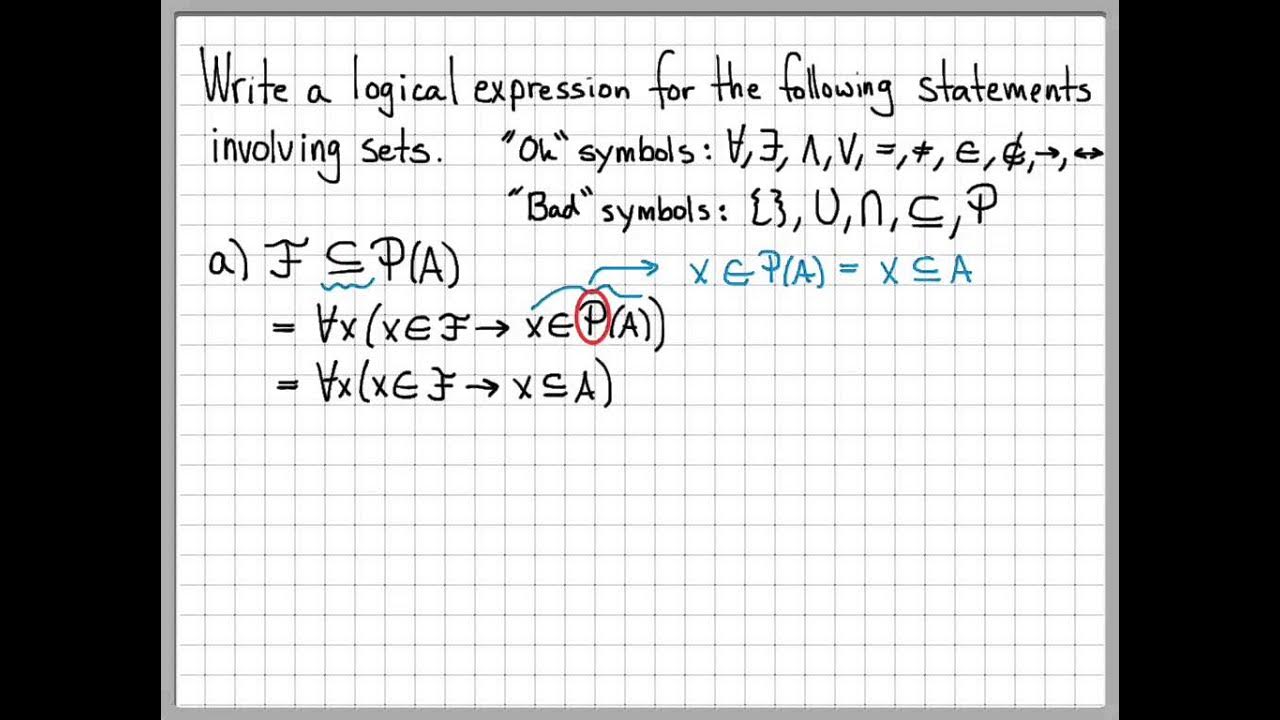 Write a logical expression for the following statements
involving sets. "Ok" symbols: ∀, ∃, ∧, ∨, =, ≠, ∈, ∉, →, ↔
"Bad" symbols: {}, ∪, ∩, ⊆, 𝒫
a) ℱ ⊆ 𝒫(A)
x ∈ 𝒫(A) = x ⊆ A
= ∀x(x ∈ ℱ → x ∈ 𝒫(A))
= ∀x(x ∈ ℱ → x ⊆ A)